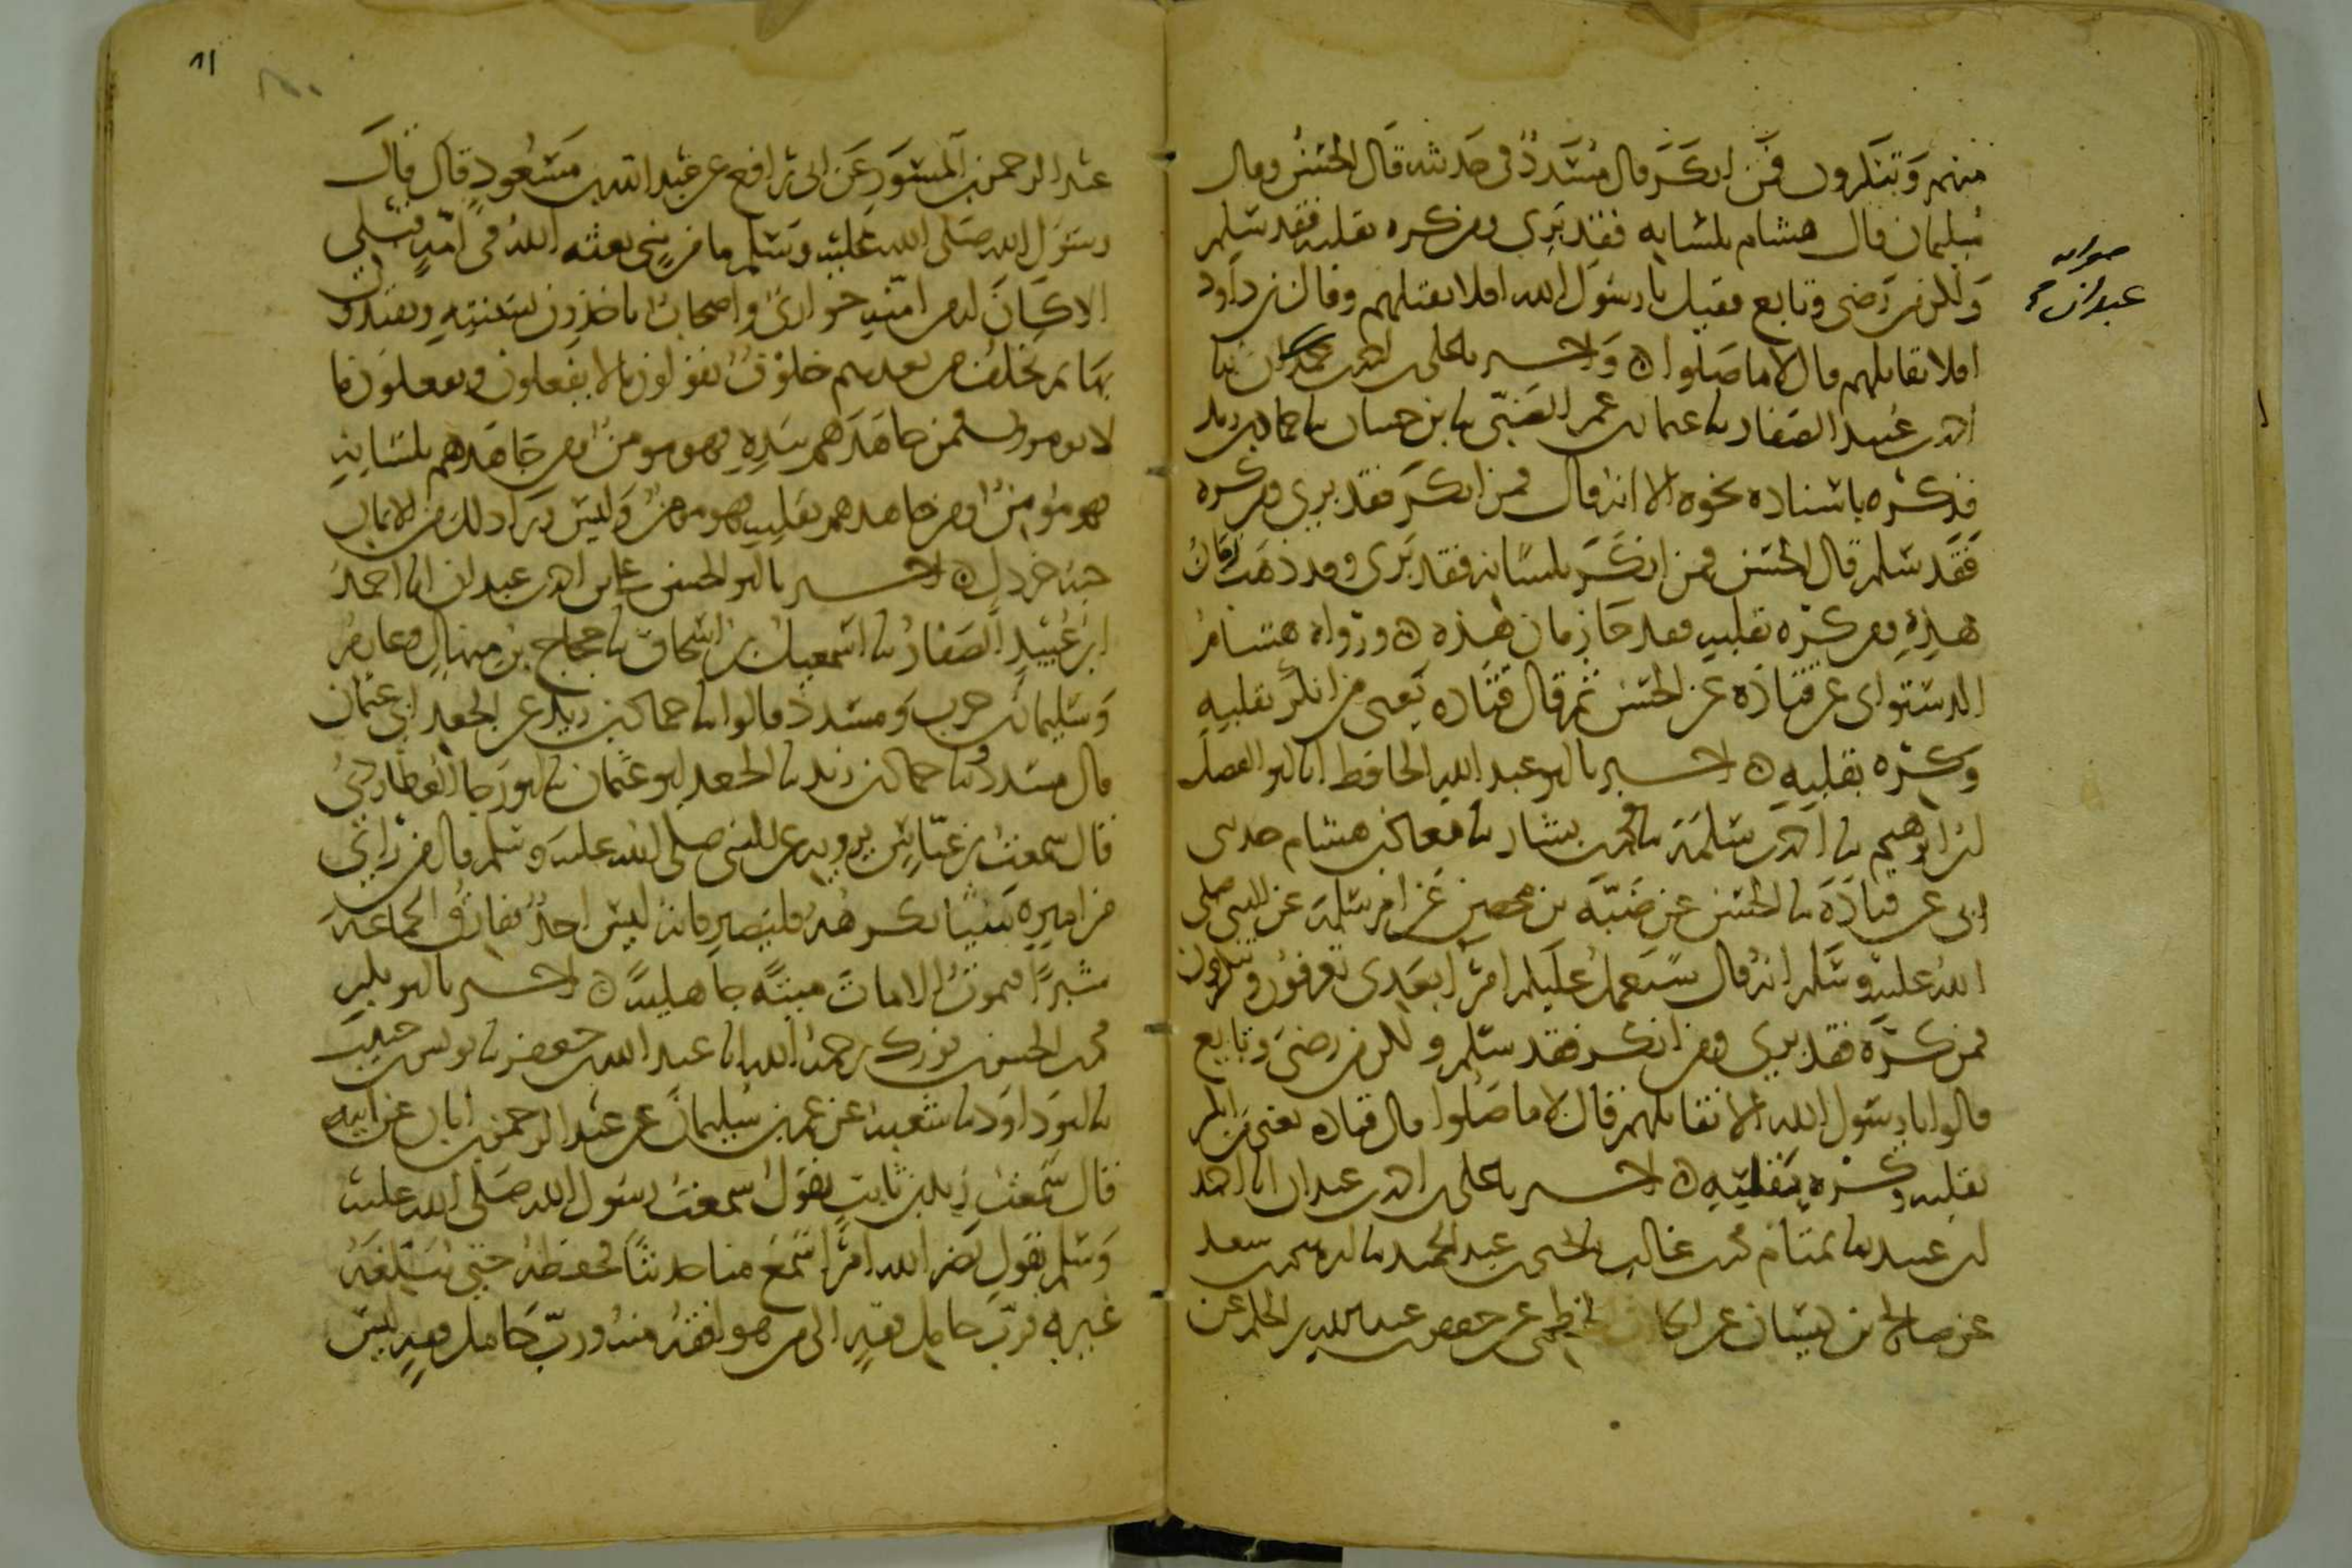 منهم وتنكرون فمن انكر قال مسدد في حديثه قال الحسن وقال
سليمان قال هشام بلسانه فقد بري ومن كره بقلبه فقد سلم
ولكن من رضي وتابع فقيل يا رسول الله افلا نقتلهم وقال بن داود
افلا نقاتلهم قال لا ما صلوا واخبرنا علي بن احمد بن عبدان نا
صوابه
عبدان
احمد بن عبيد الصفار نا عثمان بن عمر الضبي نا بن حساب نا حماد بن زيد
فذكره باسناده نحوه الا انه قال فمن انكر فقد بري ومن كره
فقد سلم قال الحسن فمن انكر بلسانه فقد بري وقد ذهب زمان
هذه ومن كره بقلبه فقد جا زمان هذه ورواه هشام
الدستواي عن قتادة عن الحسن ثم قال قتاده يعني من انكر بقلبه
وكره بقلبه اخبرنا ابو عبد الله الحافظ انا ابو الفضل
بن ابرهيم نا احمد بن سلمة نا محمد بن بشار نا معاذ بن هشام حدثني
ابي عن قتادة نا الحسن عن ضبة بن محصن عن ام سلمة عن النبي صلى
الله عليه وسلم انه قال سيعمل عليكم امرا بعدي تعرفون وتنكرون
فمن كره فقد بري ومن انكر فقد سلم ولكن من رضي وتابع
قالوا يا رسول الله الا نقاتلهم قال لا ما صلوا قال قتاده يعني من انكر
بقلبه وكره بقلبه اخبرنا علي بن احمد بن عبدان انا احمد
بن عبيد نا تمتام محمد بن غالب نا يحيى بن عبد الحميد نا ابرهيم بن سعد
عن صالح بن كيسان عن الحارث الخطمي عن جعفر بن عبد الله بن الحكم عن
٨١
عبد الرحمن بن المسور عن ابي رافع عن عبد الله بن مسعود قال قال
رسول الله صلى الله عليه وسلم ما من نبي بعثه الله في امة قبلي
الا كان له من امته حواري واصحاب ياخذون بسنته ويقتدون
بها ثم تخلف من بعدهم خلوف يقولون ما لا يفعلون ويفعلون ما
لا يومرون فمن جاهدهم بيده فهو مومن ومن جاهدهم بلسانه
فهو مومن ومن جاهدهم بقلبه فهو مومن وليس ورا ذلك من الايمان
حبة خردل اخبرنا ابو الحسن علي بن احمد بن عبدان انا احمد
ابن عبيد الصفار نا اسمعيل بن اسحاق نا حجاج بن منهال وعارم
وسليمان بن حرب ومسدد قالوا نا حماد بن زيد عن الجعد ابي عثمان
قال مسدد نا حماد بن زيد نا الجعد ابو عثمان نا ابو رجا العطاردي
قال سمعت بن عباس يرويه عن النبي صلى الله عليه وسلم قال من راى
من اميره شيئا يكرهه فليصبر فانه ليس احد يفارق الجماعة
شبرا فيموت الا مات ميتة جاهلية اخبرنا ابو بكر
محمد بن الحسن بن فورك رحمه الله انا عبد الله بن جعفر نا يونس بن حبيب
نا ابو داود نا شعبة عن عمر بن سليمان عن عبد الرحمن بن ابان عن ابيه
قال سمعت زيد بن ثابت يقول سمعت رسول الله صلى الله عليه
وسلم يقول نضر الله امرا سمع منا حديثا فحفظه حتى يبلغه
غيره فرب حامل فقه الى من هو افقه منه ورب حامل فقه ليس